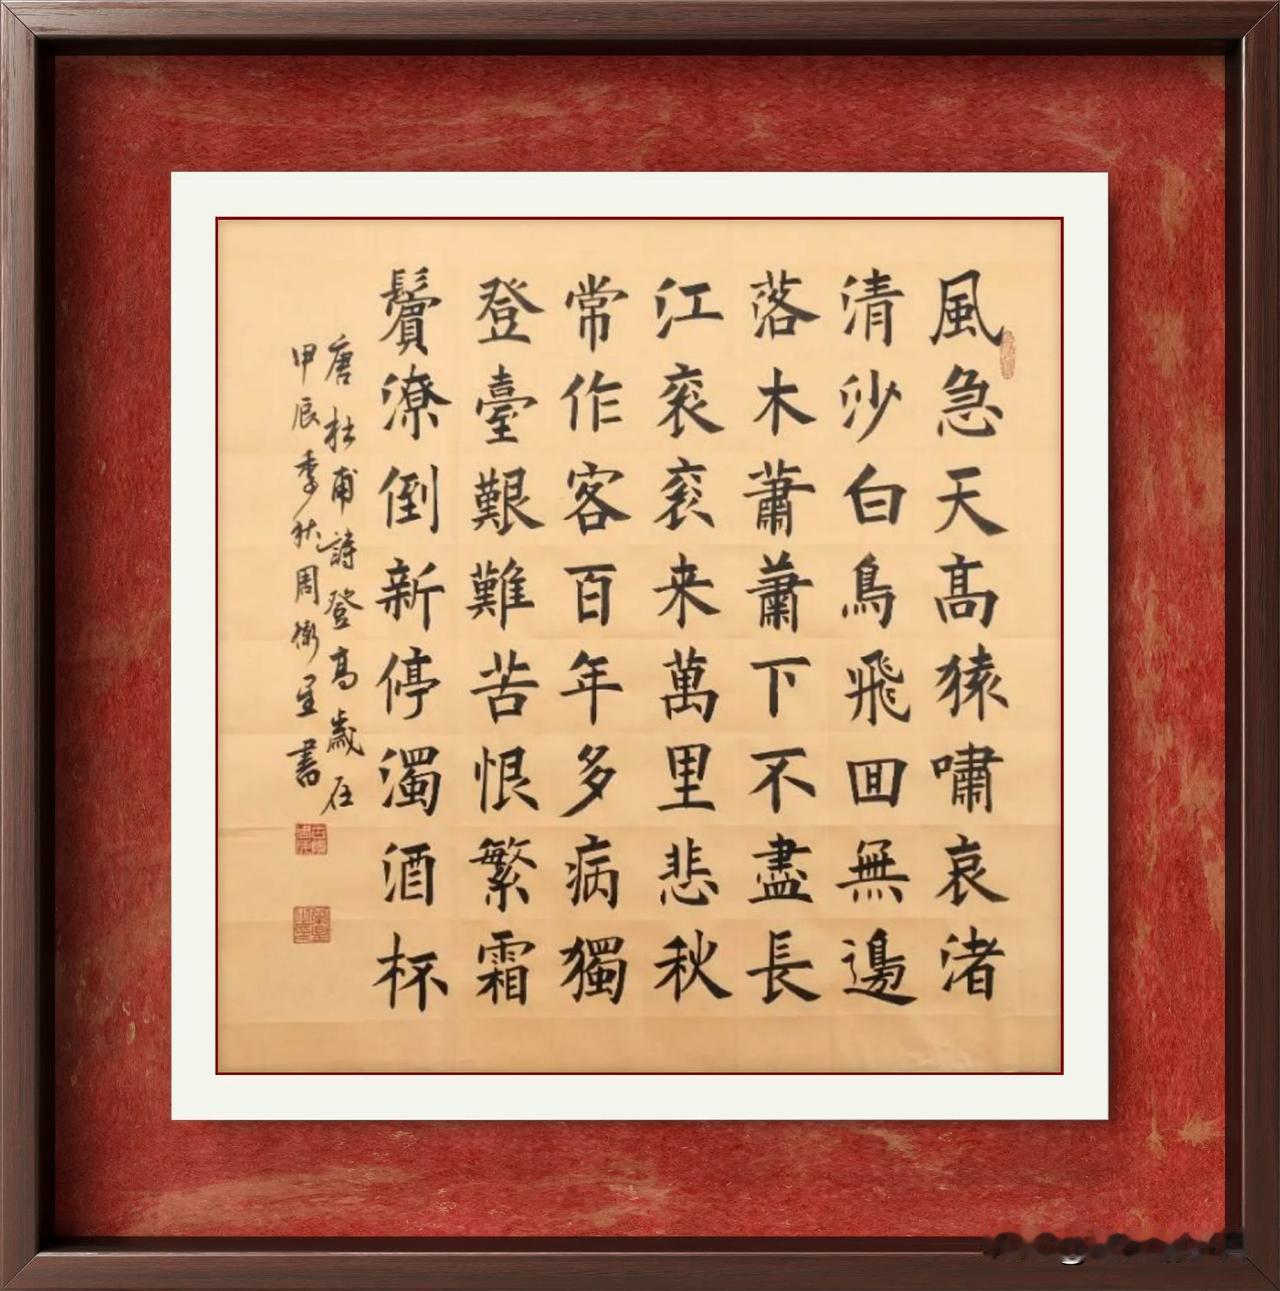 風急天高猿嘯哀渚
清沙白鳥飛回無邊
落木蕭蕭下不盡長
江衮衮来萬里悲秋
常作客百年多病獨
登臺艱難苦恨繁霜
鬢潦倒新停濁酒杯
唐杜甫詩登高歲在
甲辰季秋周衛星書